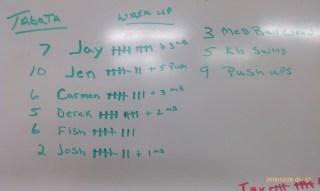 TABATA
WARM UP
7 Jay 卌 卌 + 3 MB
10 Jen 卌 || + 5 Push
6 Carmen 卌 ||| + 3 MB
5 Derek 卌 卌 + 2 MB
6 Fish 卌 |||
2 Josh 卌 || + 1 MB
3 Med Ball
5 Kb Swing
9 Push ups